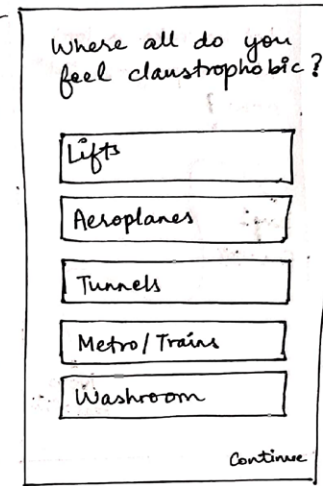 Where all do you
feel claustrophobic?
Lifts
Aeroplanes
Tunnels
Metro/Trains
Washroom
Continue